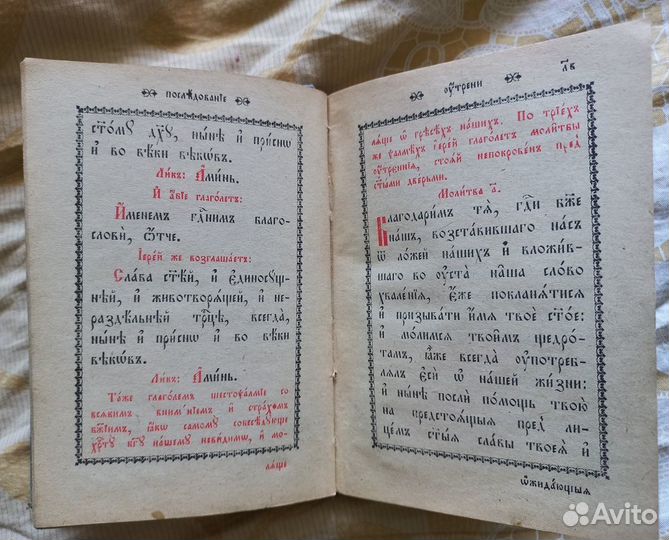 послѣдованїе
ст҃о́мꙋ дх҃ꙋ, ны́нѣ и҆ при́снѡ
и҆ во вѣ́ки вѣкѡ́въ.
Ли́къ: А҆ми́нь.
И҆ а҆́бїе глаго́летъ:
И҆́менемъ гдⷭ҇нимъ благо-
словѝ, ѻ҆́тче.
І҆ере́й же возглаша́етъ:
Сла́ва ст҃ѣ́й, и҆ є҆диносꙋ́щ-
нѣй, и҆ животворѧ́щей, и҆ не-
раздѣ́льнѣй трⷪ҇цѣ, всегда̀,
ны́нѣ и҆ при́снѡ и҆ во вѣ́ки
вѣкѡ́въ.
Ли́къ: А҆ми́нь.
Та́же глаго́лемъ шестоѱа́лмїе со
всѧ́кимъ внима́нїемъ и҆ стра́хомъ
бж҃їимъ, ꙗ҆́кѡ самомꙋ̀ собесѣ́дꙋюще
хрⷭ҇тꙋ̀ бг҃ꙋ на́шемꙋ неви́димѡ, и҆ мо-
лѧ́ще
ᲂу҆́трени
л҃в
лѧ́ще ѡ҆ грѣсѣ́хъ на́шихъ. По трїе́хъ
же ѱалмѣ́хъ і҆ере́й глаго́летъ моли́твы
ᲂу҆́треннїѧ, стоѧ̀ непокрове́нъ пред̾
ст҃ы́ми две́рьми.
Моли́тва а҃.
Благодари́мъ тѧ̀, гдⷭ҇и бж҃е
на́шъ, возста́вившаго на́съ
ѿ ло́жей на́шихъ и҆ вложи́в-
шаго во ᲂу҆ста̀ на̑ша сло́во
хвале́нїѧ, є҆́же покланѧ́тисѧ
и҆ призыва́ти и҆́мѧ твоѐ ст҃о́е:
и҆ мо́лимсѧ твои̑мъ щедро́-
тамъ, ꙗ҆̀же всегда̀ ᲂу҆потреб-
лѧ́лъ є҆сѝ ѡ҆ на́шей жи́зни:
и҆ ны́нѣ послѝ по́мощь твою̀
на предстоѧ́щыѧ пред̾ ли-
це́мъ ст҃ы́ѧ сла́вы твоеѧ̀ и҆
ѡ҆жида́ющыѧ
Avito